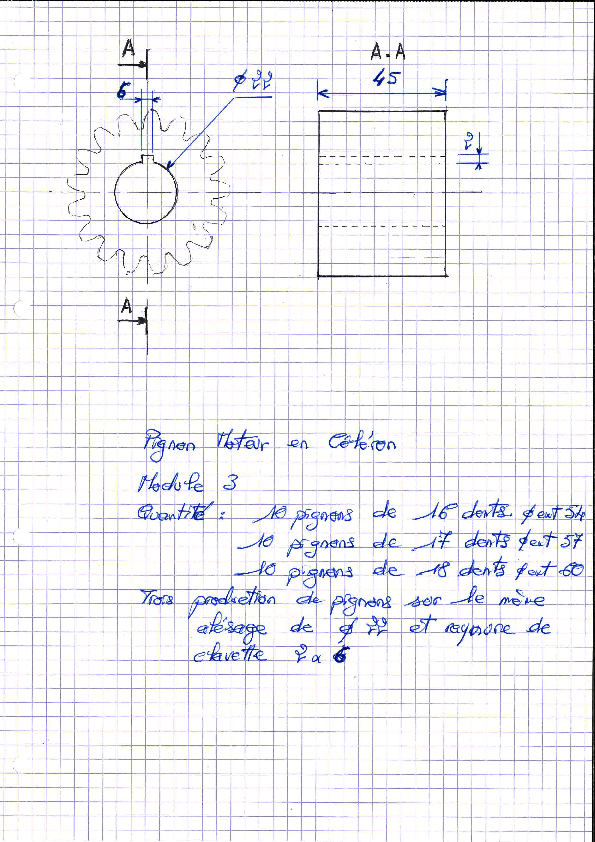 A
A-A
45
6
ø 22
2
A
Pignon Moteur en Céléron
Module 3
Quantité : 10 pignons de 16 dents ø ext 54
10 pignons de 17 dents ø ext 57
10 pignons de 18 dents ø ext 60
Trois production de pignons sur le même
alésage de ø 22 et de
clavette 2 x 6